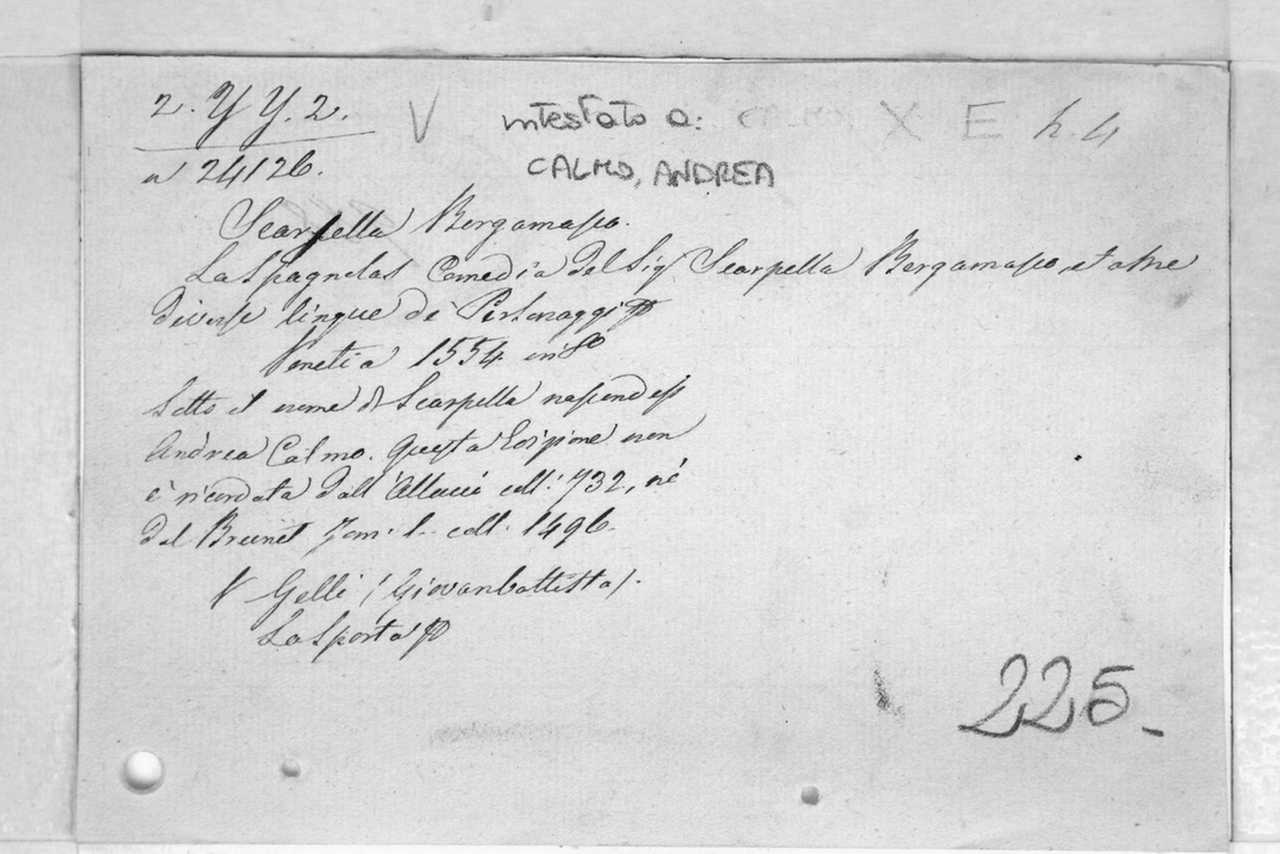 2. Y Y. 2. V intestato a: CALMO, X E h. 4
n 24126. CALMO, ANDREA
Scarpella Bergamasco.
La Spagnolas Comedia del Sig. Scarpella Bergamasco, et altre
diverse lingue de Personaggi
Venetia 1554 in 8º
Sotto il nome di Scarpella nascondesi
Andrea Calmo. Questa Edizione non
è ricordata dall'Allacci coll: 732, né
dal Brunet Tom: 1. coll: 1496.
V Gelli (Giovanbattista).
La Sporta
225.